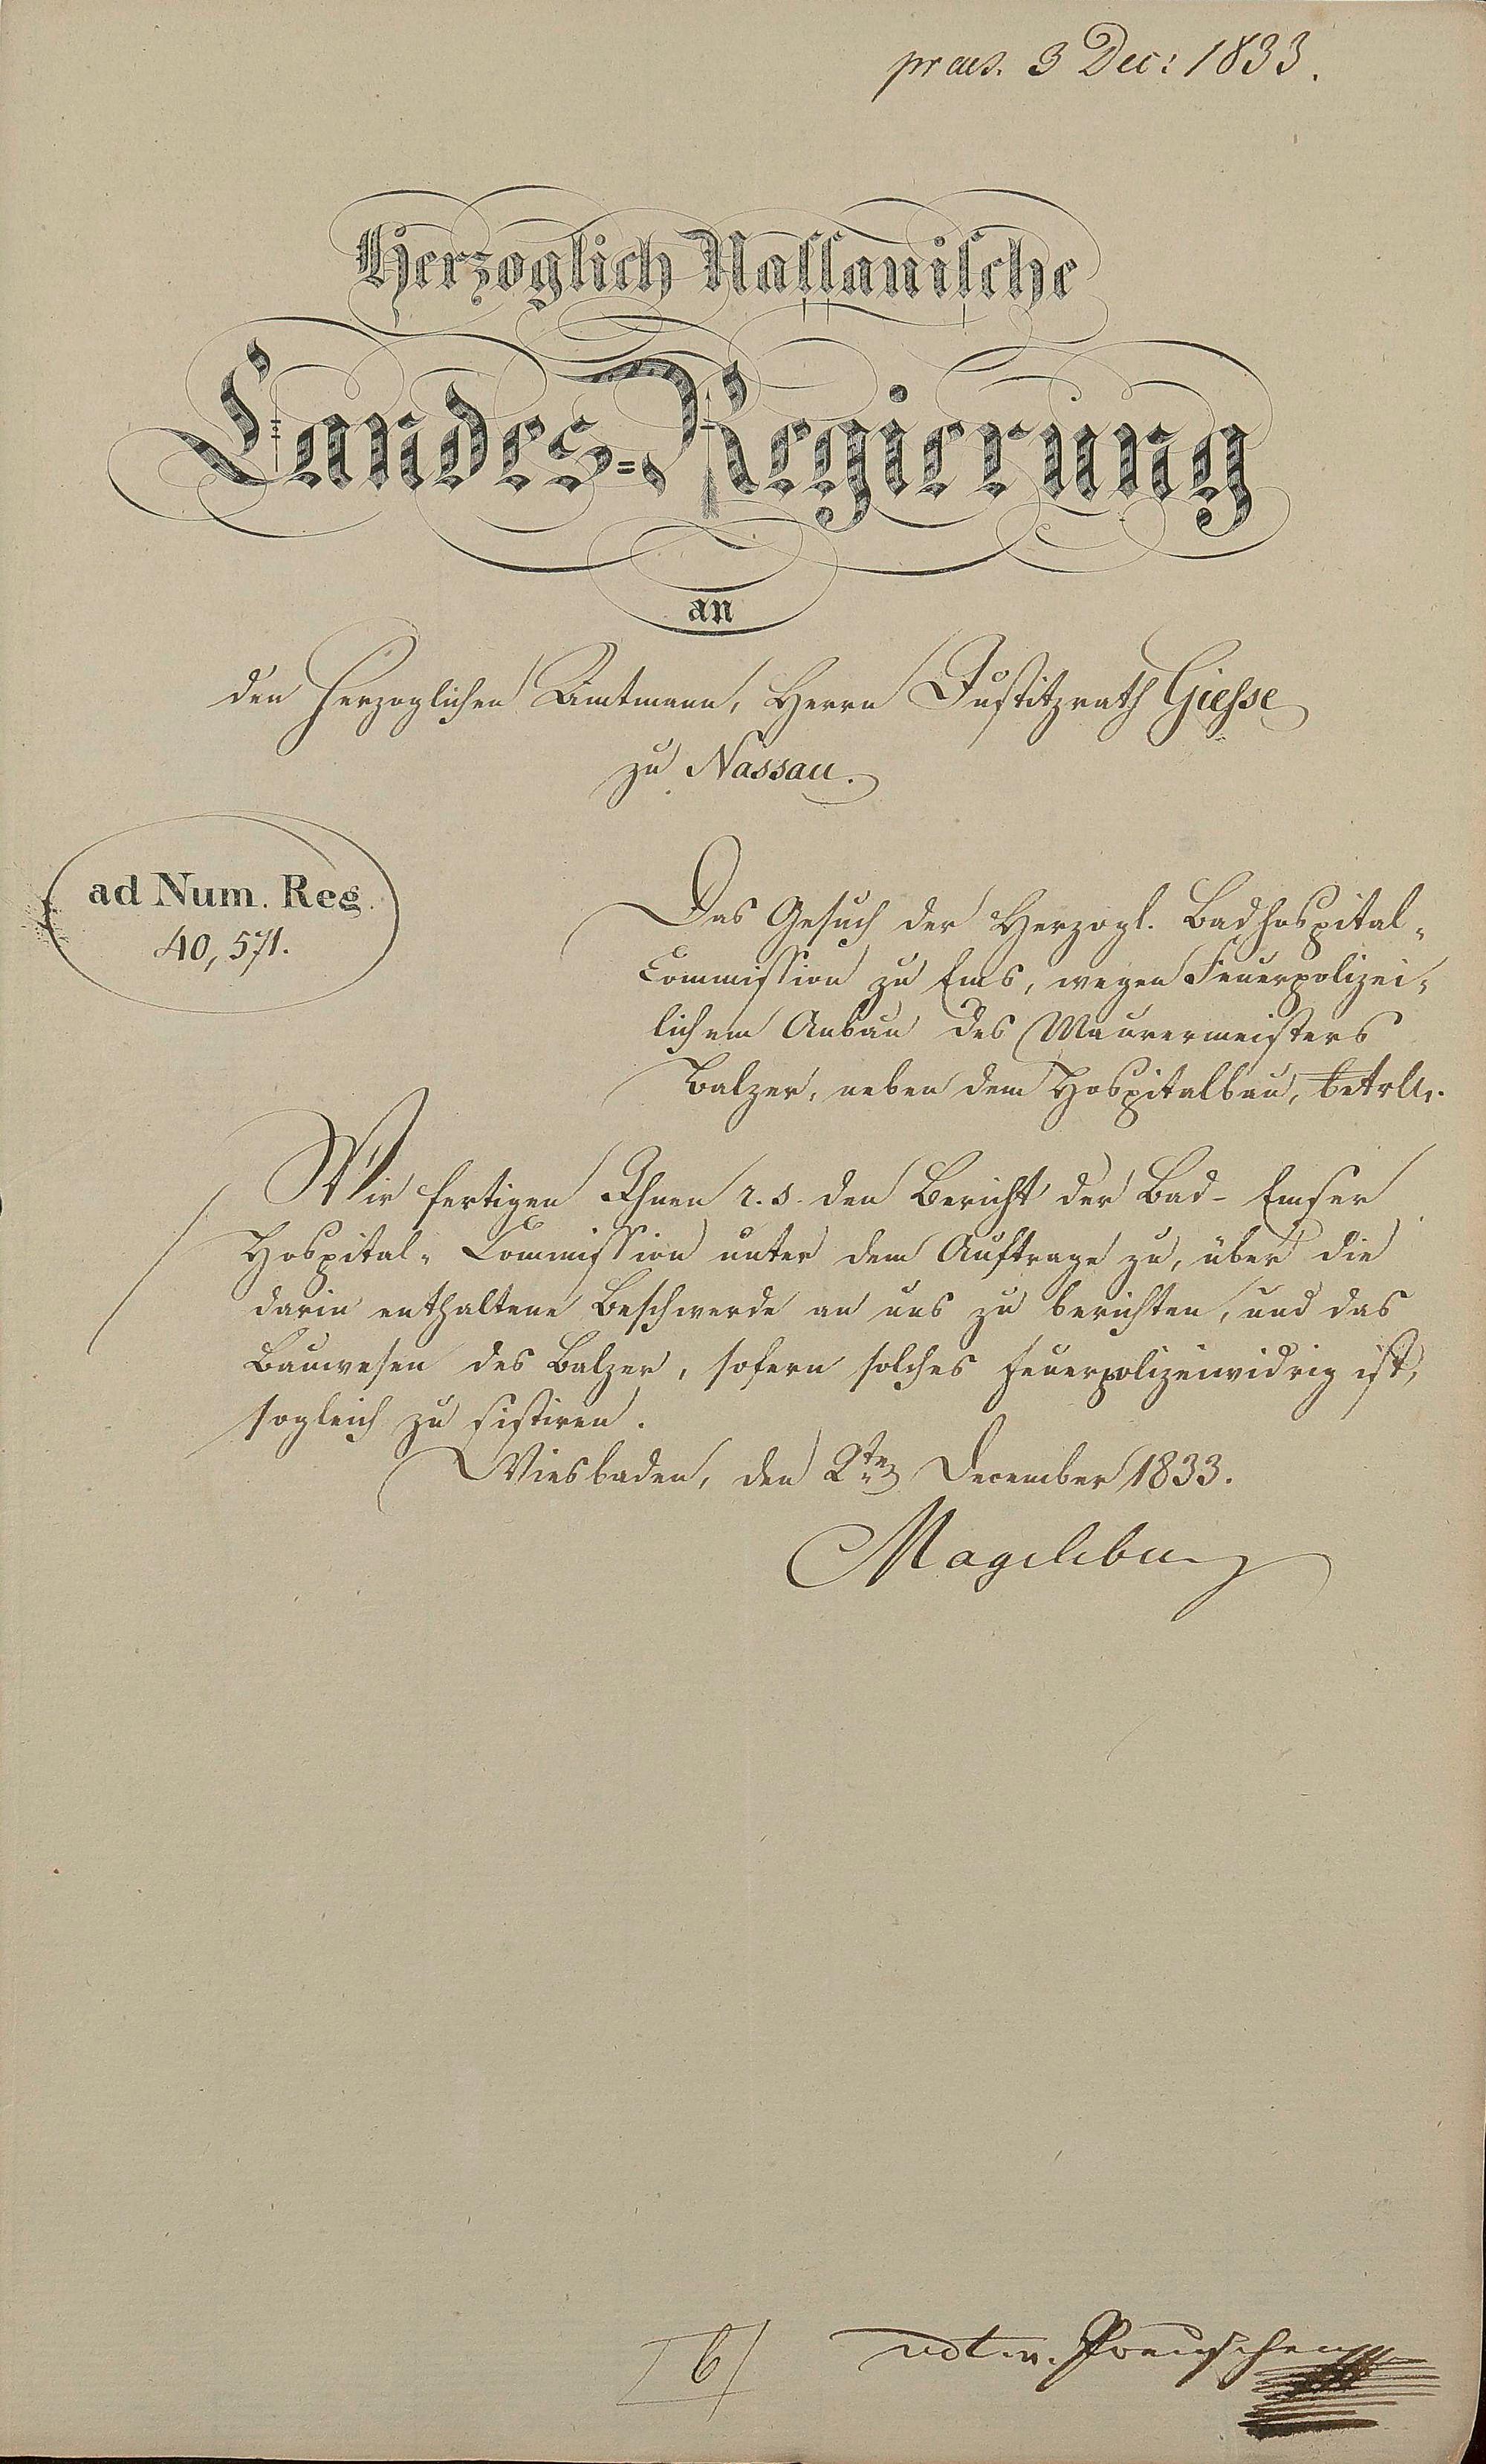 praes. 3 Dec: 1833.
Herzoglich Nassauische
Landes-Regierung
an
den Herzoglichen Amtmann, Herrn Justitzrath Giesse
zu Nassau.
ad Num. Reg.
40,571.
Das Gesuch der Herzogl. Badhospital-
Commission zu Ems, wegen Feuerpolizei-
lichem Anbau des Maurermeisters
Balzer, neben dem Hospitalbau, betr.
Wir fertigen Ihnen r. s. den Bericht der Bad-Emser
Hospital-Commission unter dem Auftrage zu, über die
darin enthaltene Beschwerde an uns zu berichten, und das
Bauwesen des Balzer, sofern solches feuerpolizeiwidrig ist,
sogleich zu sistiren.
Wiesbaden, den 2ten December 1833.
Magdeburg
vdt. v. Preuschen